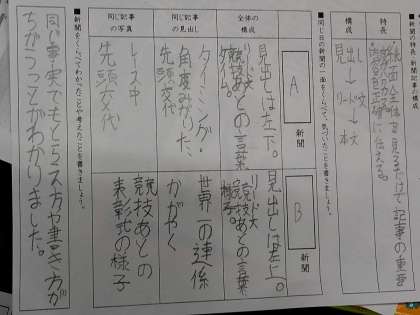 新聞の特長・新聞記事の構成
特長
紙面全体を見るだけで記事の重要
に伝える。
構成
見出し→リード文→
本文
■同じ日の新聞の一面をくらべて、気づいたことを書きましょう。
A 新聞
B 新聞
全体の構成
見出しは左下。
競技あとの言葉
見出しは左上。
リード文
競技あとの言葉
様子。
同じ記事の見出し
タイミング・
角度みがいた、
先頭交代
世界一の連係
かがやく
同じ記事の写真
レース中
先頭交代
競技あとの
表彰式の様子
■新聞をくらべてわかったことや考えたことを書きましょう。
同じ事実でもとらえ方や書き方が
ちがうことがわかりました。